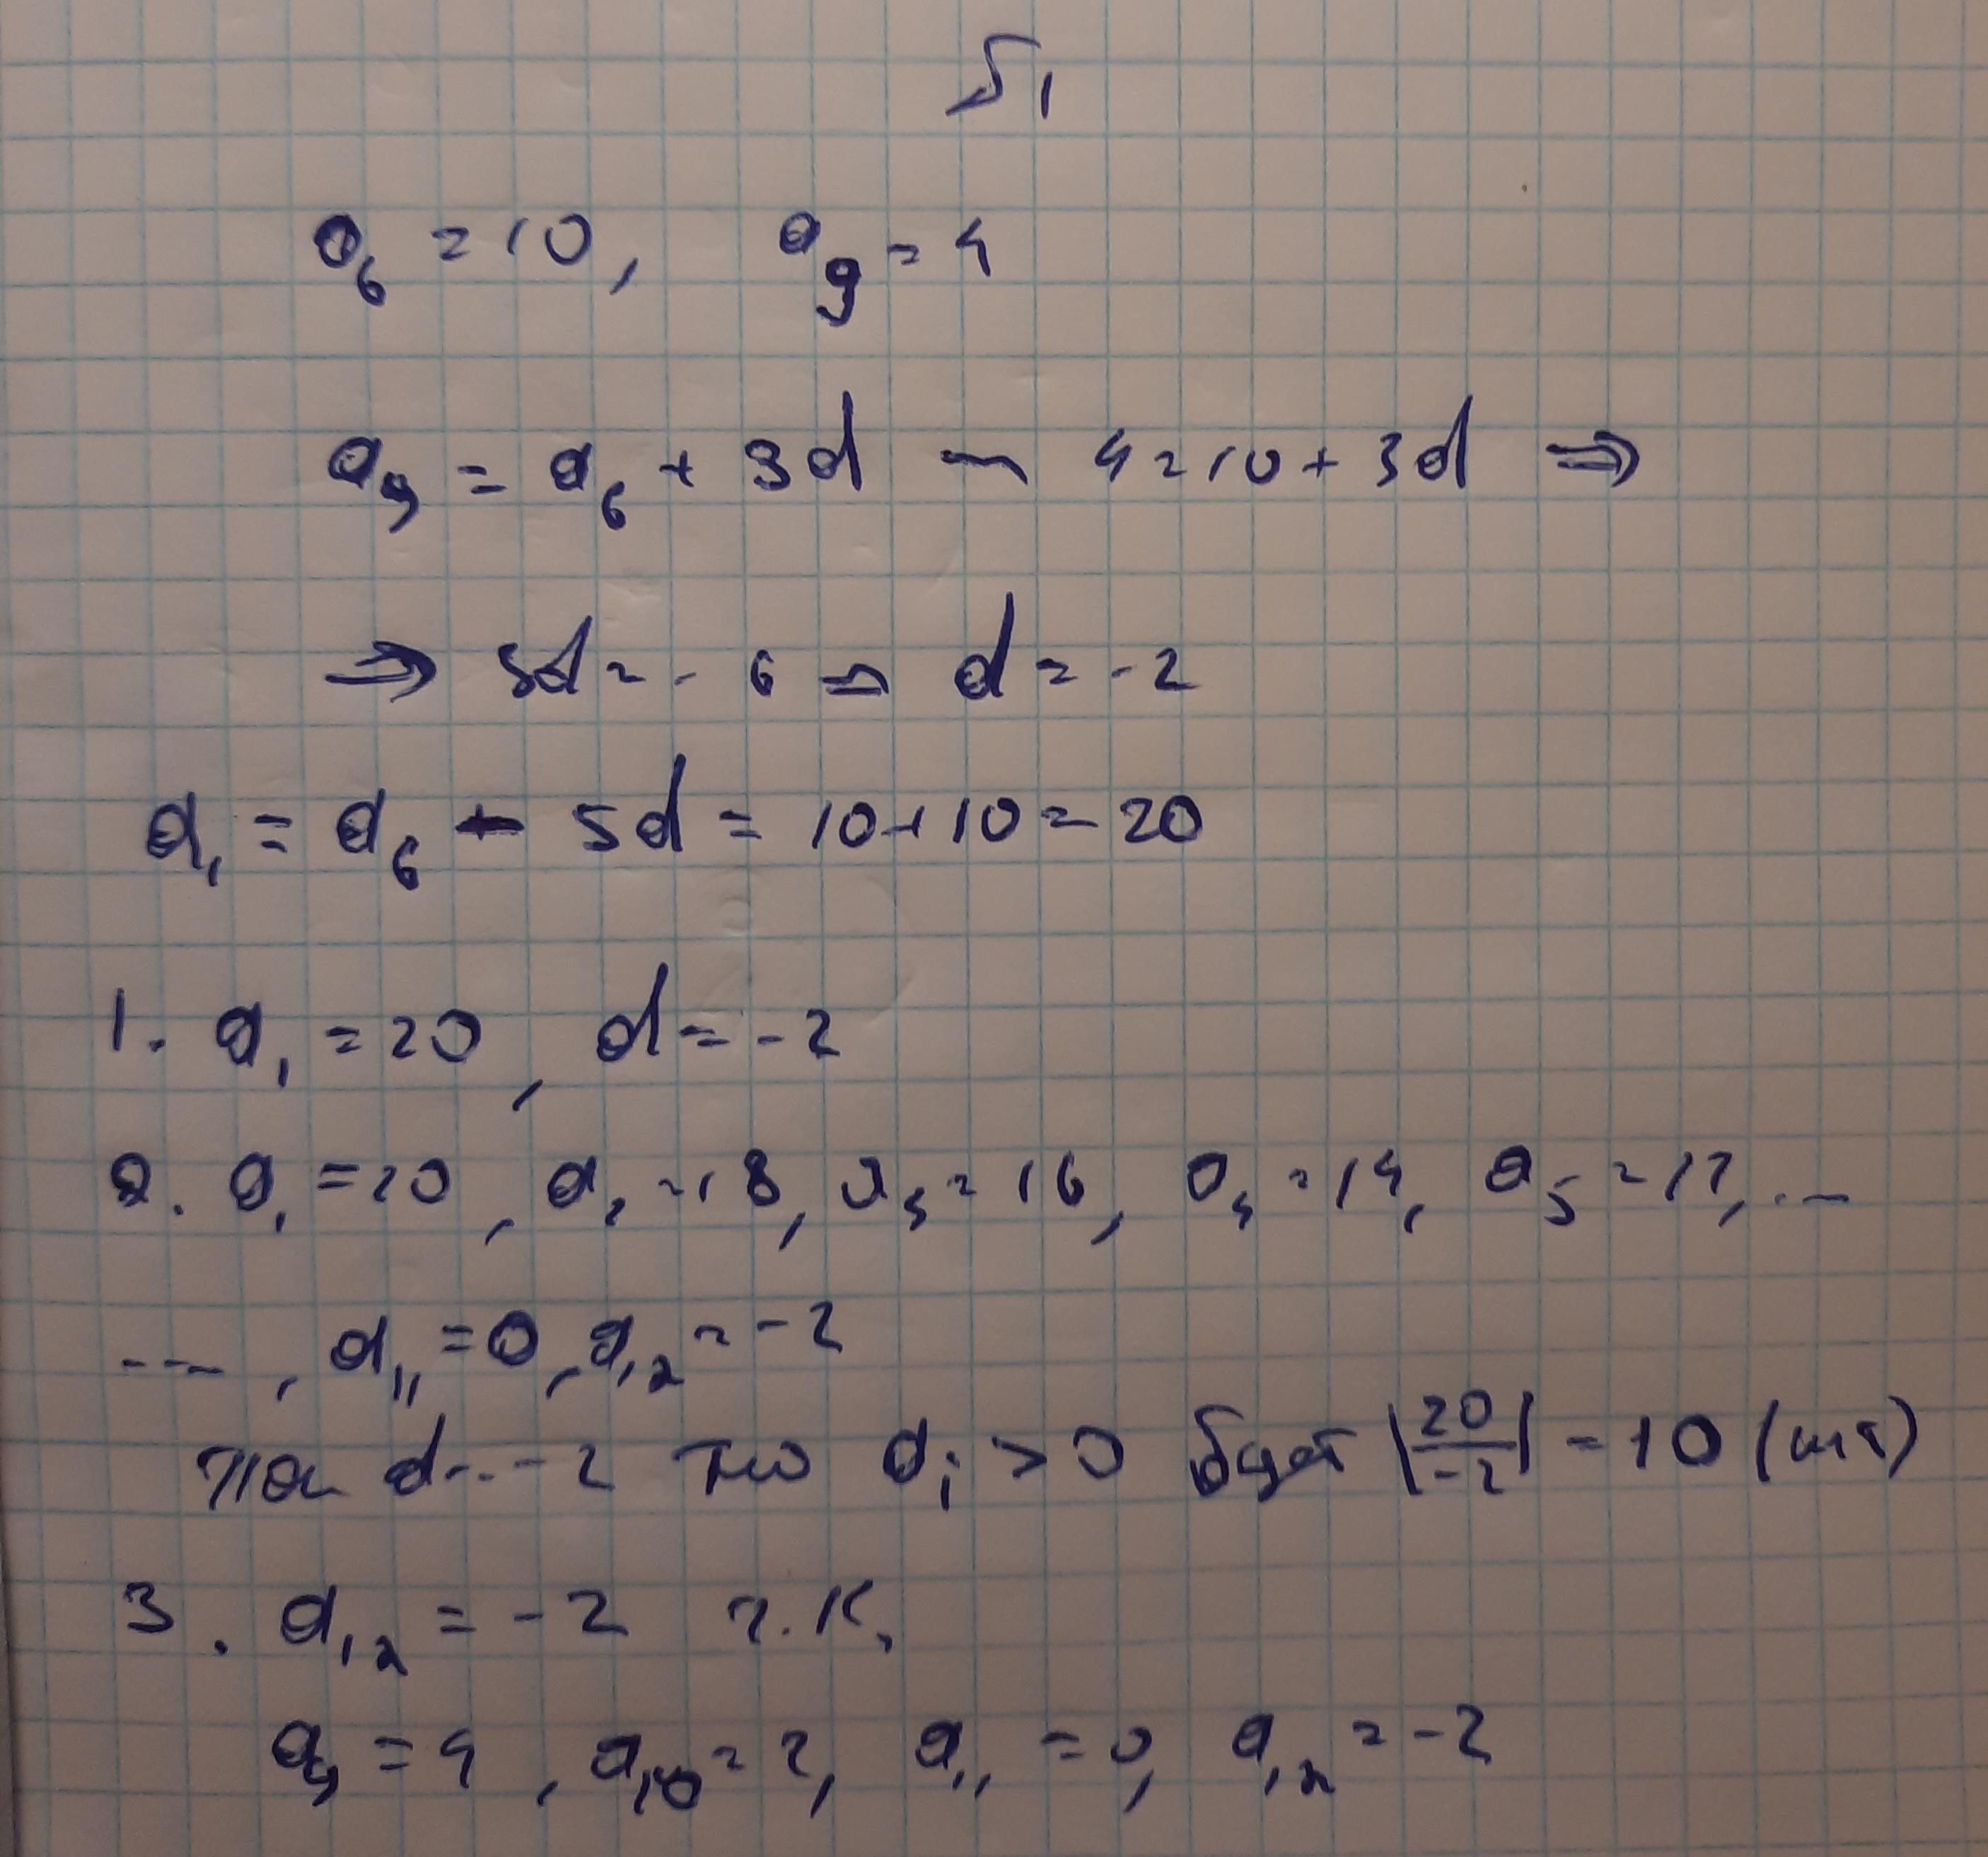 Б1
a₆ = 10, a₉ = 4
a₉ = a₆ + 3d ⇒ 4 = 10 + 3d ⇒
⇒ 3d = -6 ⇒ d = -2
a₁ = a₆ - 5d = 10 + 10 = 20
1. a₁ = 20, d = -2
2. a₁ = 20, a₂ = 18, a₃ = 16, a₄ = 14, a₅ = 12, ...
..., a₁₁ = 0, a₁₂ = -2
d = -2 то aᵢ > 0 будет |20/-2| = 10 (шт)
3. a₁₂ = -2 т.к.
a₉ = 4, a₁₀ = 2, a₁₁ = 0, a₁₂ = -2